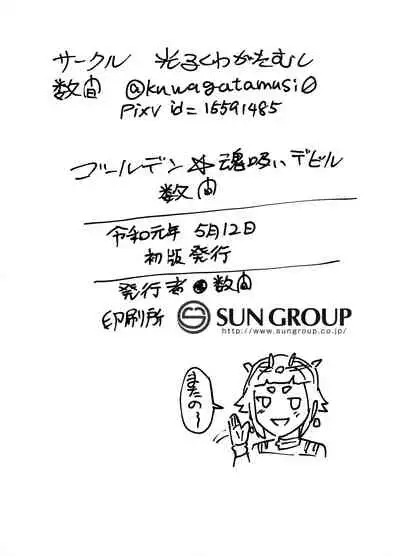 サークル 光るくわがたむし
数間 @kuwagatamusi0
Pixv id=15591485
ゴールデン☆魂吸いデビル
数間
令和元年 5月12日
初版発行
発行者 数間
印刷所 SUN GROUP
http://www.sungroup.co.jp/
またの〜